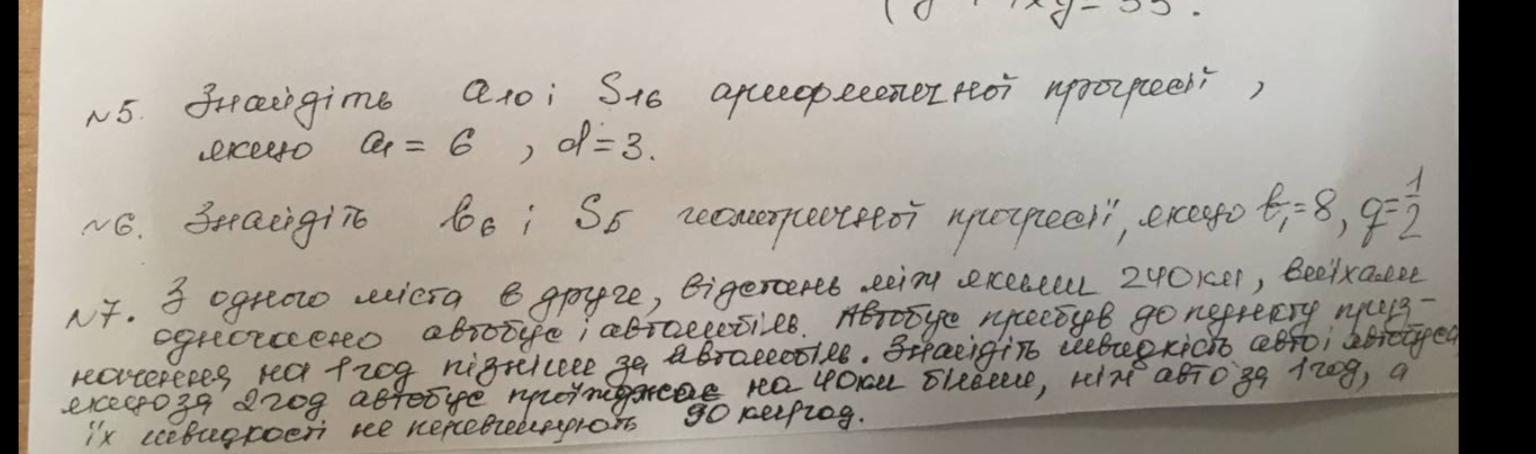 y= 55.
№5. Знайдіть a10 і S16 арифметичної прогресії,
якщо a1 = 6, d=3.
№6. Знайдіть b6 і S5 геометричної прогресії, якщо b1=8, q=1/2
№7. З одного міста в друге, відстань між якими 240 км, виїхали
одночасно автобус і автомобіль. Автобус прибув до пункту приз-
начення на 1 год пізніше за автомобіль. Знайдіть швидкість авто і автобуса,
якщо за 2 год автобус проїжджає на 40 км більше, ніж авто за 1 год, а
їх швидкості не перевищують 90 км/год.